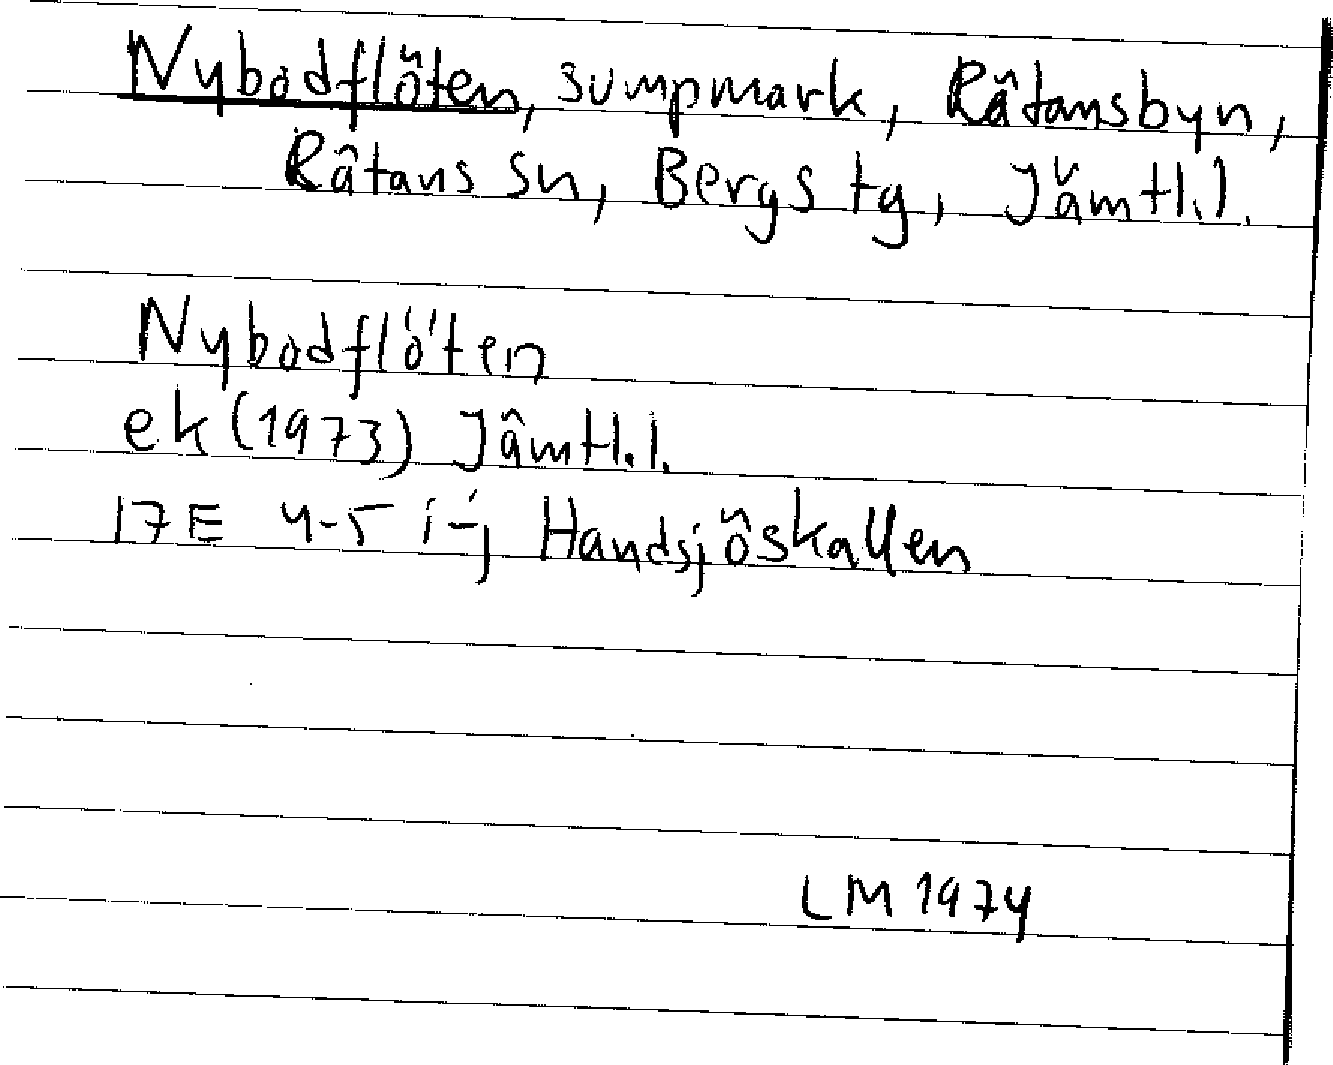 Nybodflöten, sumpmark, Råtansbyn,
Råtans sn, Bergs tg, Jämtl.l.
Nybodflöten
ek (1973) Jämtl.l.
17E 4-5 i-j Handsjöskallen
LM 1974